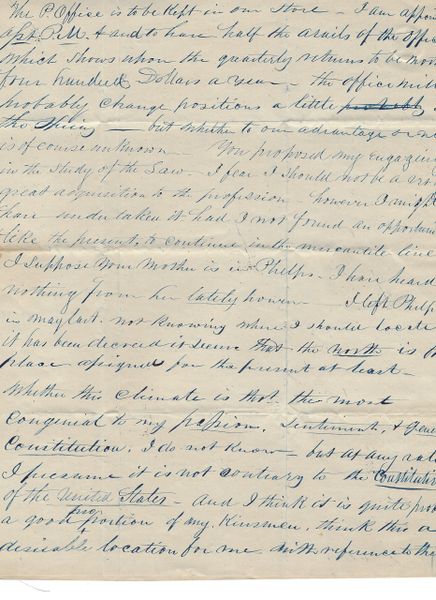 The P. Office is to be Kept in our Store – I am appoin
apt P.M. & and to have half the avails of the office
which shows upon the quarterly returns to be more
four hundred Dollars a year – the office will
probably change positions a little probably
the Spring – but whether to our advantage or n
is of course unknown – You proposed my engaging
in the Study of the Law – I fear I should not be a very
great acquisition to the profession – however I might
have undertaken it had I not found an opportun
like the present, to continue in the mercantile line
I suppose Your Mother is in Phelps. I have heard
nothing from her lately however – I left Phelps
in may last. not knowing where I should locate
it has been decreed it seems that the north is the
place assigned for the present at least –
Whether this Climate is the most
Congenial to my passions, Sentiment, & Gener
Constitution, I do not know – but at any rate
I presume it is not contrary to the Constitution
of the United States – and I think it is quite prob
a good proportion of my Kinsmen, think this a
desirable location for me with reference to the